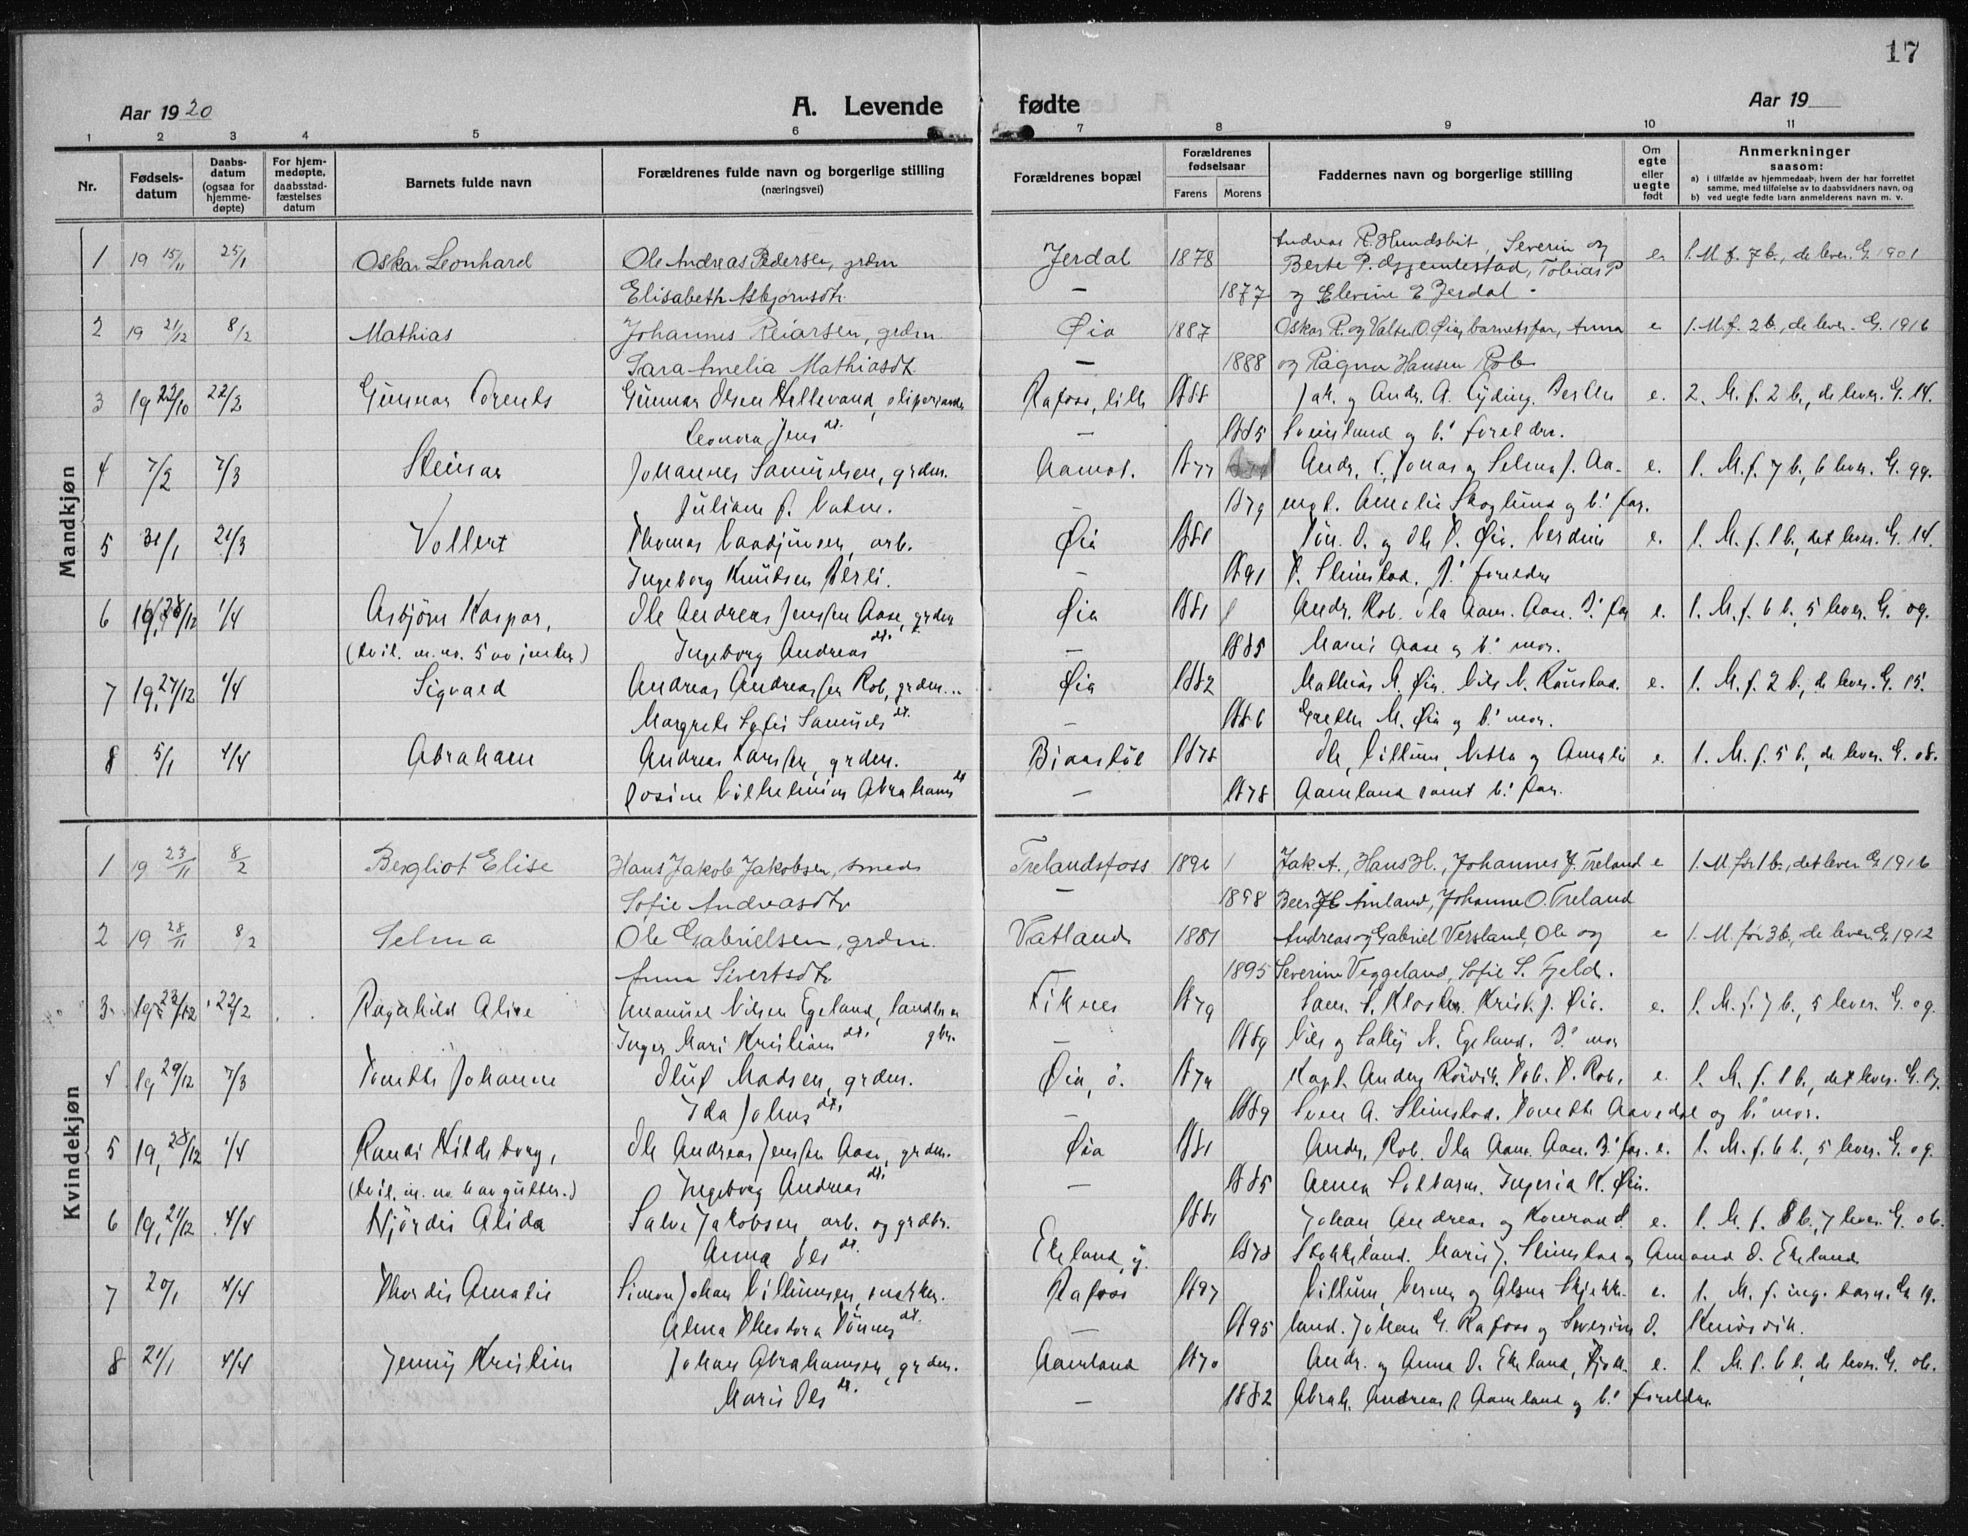 17
Aar 1920 A. Levende fødte Aar 19
1 2 3 4 5 6 7 8 9 10 11
Nr. Fødselsdatum Daabsdatum (ogsaa for hjemmedøpte) For hjemmedøpte, daabsstadfæstelses datum Barnets fulde navn Forældrenes fulde navn og borgerlige stilling (næringsvei) Forældrenes bopæl Forældrenes fødselsaar Farens Morens Faddernes navn og borgerlige stilling Om egte eller uegte født Anmerkninger saasom:
a) i tilfælde av hjemmedaab, hvem der har forrettet samme, med tilføielse av to daabsvidners navn, og
b) ved uegte fødte barn anmelderens navn m. v.
Mandkjøn
1 19 15/11 25/1 Oskar Leonhard Ole Andreas Pedersen, grdm Jerdal 1878 Andreas P. Hundsbit, Severin og e. 1. M. f. 7 b., de lever. G. 1901
Berte P. Eggemlestad, Tobias P
Elisabeth Asbjørnsdtr — 1877 og Elevine E Jerdal.
2 19 21/12 8/2 Mathias Johannes Reiarsen, grdm. Øia 1887 Oskar R. og Valter O. Øia, barnets far, Anna e. 1. M. f. 2 b., de lever. G. 1916
Sara Amelia Mathiasdt. — 1888 og Ragna Hansen Rob
3 19 23/10 22/2 Gunnar Lorents Gunnar Olsen Hellevand, Rafoss, lille 1888 Jak. og Andr. A. e. 2. M. f. 2 b., de lever. G. 14.
Leonora Jensdt. — 1885 Svindland og b.' foreldre.
4 7/2 7/3 Steinar Johannes Samuelsen, grdm. Aamot. 1877 Andr. Jonas og Selma J. Aa- e. 1. M. f. 7 b., 6 lever. G. 99.
Juliane J. Vatne. — 1879 mot. Amalie Skoglund og b.' far.
5 31/1 21/3 Vollert Thomas arb. Øia 1881 Tøn. O. og Ole T. Øia. e. 1. M. f. 1 b., det lever. G. 14.
Ingeborg Knudsen — 1891 T. Slimstad. B.' foreldre
6 19, 28/12 1/4 Asbjørn Kaspar, Ole Andreas Jenssen Aase, grdm Øia 1881 Andr. Rob. Ola Aam. Aase. B.' far e. 1. M. f. 6 b., 5 lever. G. 09.
(tvil. m. no. 5 av jenter) Ingeborg Andreasdt. — 1885 Marie Aase og b.' mor.
7 19, 27/12 1/4 Sigvald Andreas Andreassen Rob, grdm. Øia 1882 Mathias M. Øia. Nils N. e. 1. M. f. 2 b., de lever. G. 15.
Margrete Sofie Samuelsdt. — 1886 Grethe M. Øia og b.' mor.
8 5/1 4/4 Abraham Andreas Larssen, grdm. 1878 Ole, Villum, Netta og Amalie e. 1. M. f. 5 b., de lever. G. 08.
Josine Vilhelmine Abrahamsdt — 1878 Aamland samt b.' far.
Kvindekjøn
1 19 23/11 8/2 Bergliot Elise Hans Jakob Jakobsen, smed Trelandsfoss 1896 Jak A., Hans H., Johannes J. Treland e 1. M. før 1 b., det lever. G. 1916
Sofie Andreasdtr — 1898 Amland, Johanne O. Treland
2 19 28/11 8/2 Selma Ole Gabrielsen, grdm. Vatland 1881 Andreas og Gabriel Versland, Ole og e 1. M. før 3 b., de lever. G. 1912
Anna Sivertsdtr 1895 Severine Veggeland, Sofie S. Fjeld.
3. 19 23/12 22/2 Ragnhild Alise Emanuel Nilsen Egeland, landbr. og Fiknes 1879 Sam. S. Kloster. Krist. J. Øie. e. 1. M. f. 7 b., 5 lever. G. 09.
Inger Mari Kristiansdt. gbr. — 1889 Nils og Sally N. Egeland. B.' mor
4 19 29/12 7/3 Tonette Johanne Oluf Madsen, grdm. Øia, ö. Kapt. Anders Rörvik. Tob. T. Rob. e. 1. M. f. 1 b., det lever. G. 17.
Ida Johnsdt. — 1889 Sven A. Slimstad. Tonette Aavedal og b.' mor.
5 19, 28/12 1/4 Randi Hildeborg, Ole Andreas Jenssen Aase, grdm. Øia 1881 Andr. Rob. Ola Aam. Aase. B.' far. e. 1. M. f. 6 b., 5 lever. G. 09.
(tvil. m. no. 6 av gutter.) Ingeborg Andreasdt. — 1885 Anna Ingeria K. Øia.
6 19, 21/12 4/4 Hjördis Alida Salve Jakobsen, arb. og grdbr. 1881 Johan Andreas og Konrad S. e. 1. M. f. 8 b., 7 lever. G. 06.
Anna Olsdt. Ekeland, y. 1878 Stokkeland. Marie J. Slimstad og Amand O. Ekeland
7 20/1 4/4 Thordis Amalie Simon Johan Villumsen, snekker. Rafoss 1897 Villum, Verner og Alma Skjekke- e. 1. M. f. ing. barn. G. 19.
Alma Theodora Tönnesdt. — 1895 land. Johan G. Rafoss og Severine O. Kenösvik.
8 21/1 4/4 Jenny Kristine Johan Abrahamsen, grdm. Aamland 1870 Andr. og Anna O. Ekeland, e. 1. M. f. 6 b., de lever. G. 06.
Marie Olsdt. — 1882 Abrah. Andreas J. Aamland og b.' foreldre.